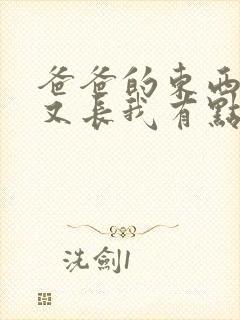 爸爸的東西
又長我有點
洗劍1